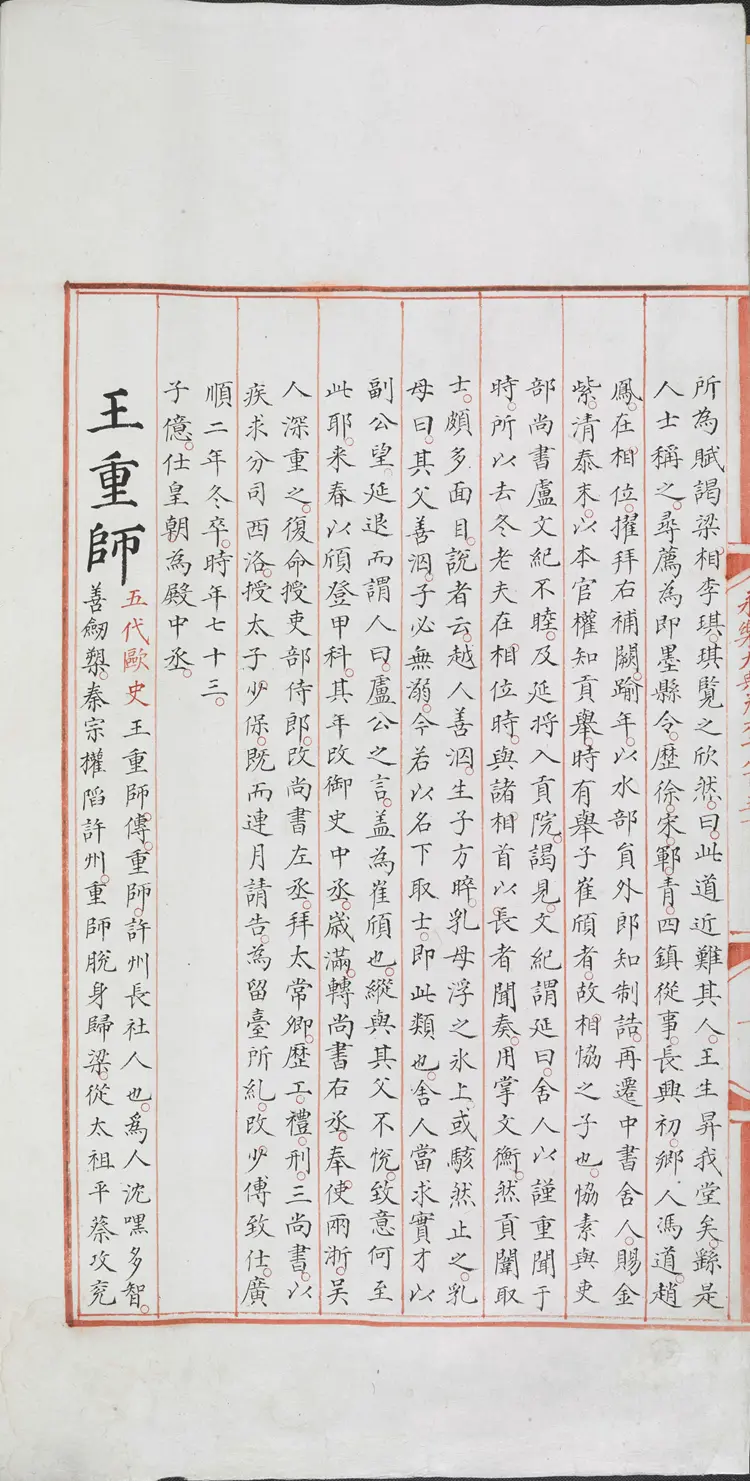 所為賦謁梁相李琪。琪覽之欣然。曰。此道近難其人。王生昇我堂矣。繇是
人士稱之。尋薦為即墨縣令。歷徐。宋。鄆。青。四鎮從事。長興初。鄉人馮道。趙
鳳。在相位。擢拜右補闕。踰年。以水部員外郎知制誥。再遷中書舍人。賜金
紫。清泰末。以本官權知貢舉。時有舉子崔頎者。故相協之子也。協素與吏
部尚書盧文紀不睦。及延將入貢院。謁見。文紀謂延曰。舍人以謹重聞于
時。所以去冬老夫在相位時。與諸相首以長者聞奏。用掌文衡。然貢闈取
士。頗多面目。說者云。越人善泅。生子方晬。乳母浮之水上。或駭然止之。乳
母曰。其父善泅。子必無溺。今若以名下取士。即此類也。舍人當求實才以
副公望。延退而謂人曰。盧公之言。盖為崔頎也。縱與其父不悅。致意何至
此耶。来春以頎登甲科。其年改御史中丞。歲滿。轉尚書右丞。奉使兩浙。吴
人深重之。復命授吏部侍郎。改尚書左丞。拜太常卿。歷工。禮。刑。三尚書。以
疾求分司西洛。授太子少保。既而連月請告。為留臺所糺。改少傅致仕。廣
順二年冬卒。時年七十三。
子億。仕皇朝。為殿中丞。
王重師
五代歐史王重師。傳。重師。許州長社人也。為人沈嘿多智。
善劒槊。秦宗權陷許州。重師脫身歸梁。從太祖平蔡攻兖